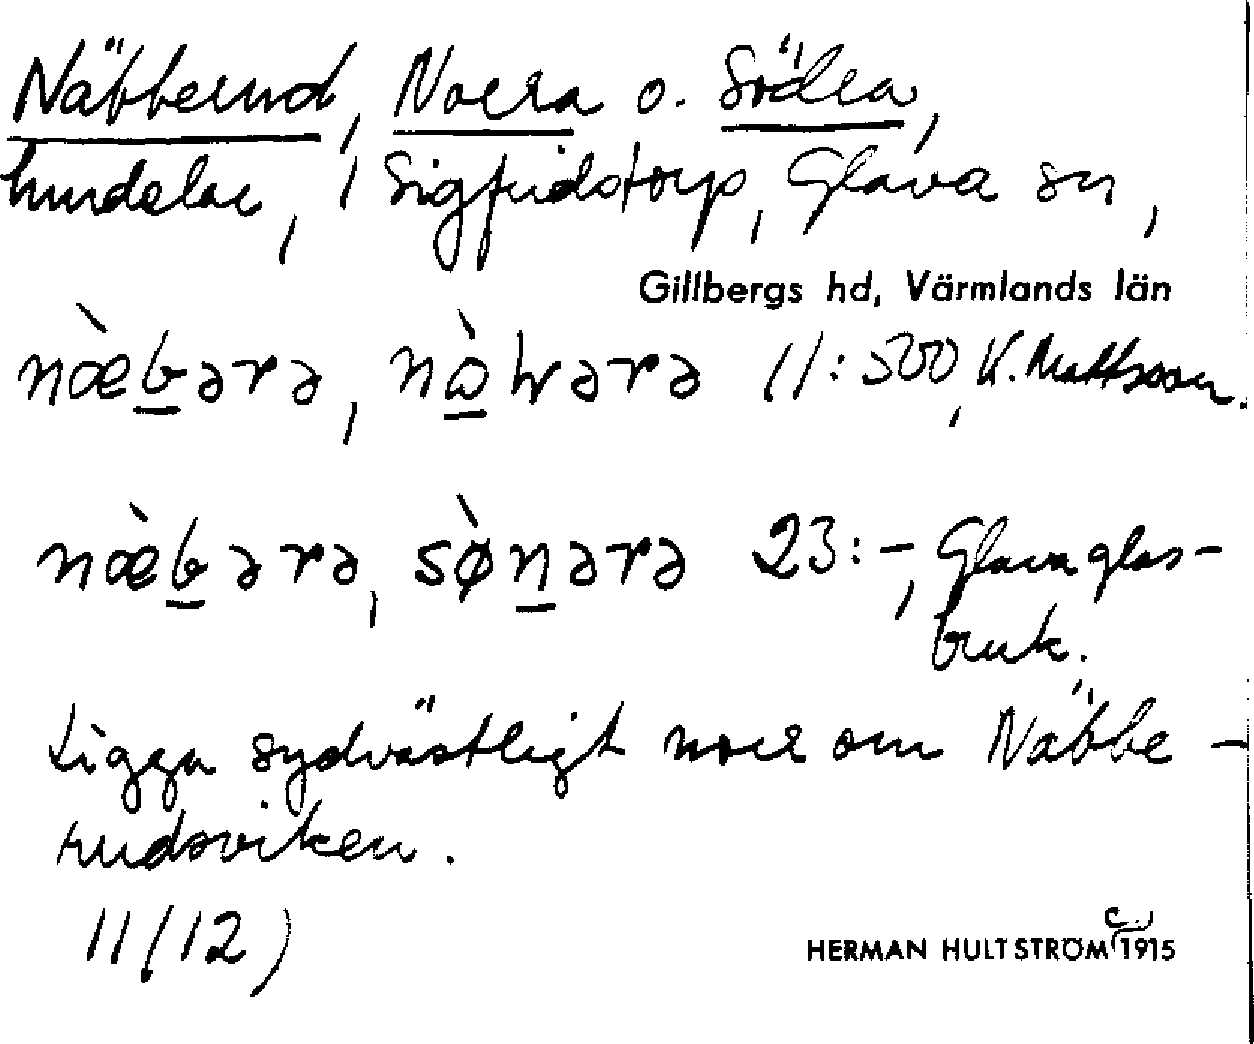 Näbberud, Norra o. Södra,
hmdelar, i Sigfridstorp, Glava sn,
Gillbergs hd, Värmlands län
nὰbərə, nòwərə 11:500, K. Mattsson.
næ̀bərə, sø̀nərə 23:-, Glava glas-
bruk.
Ligga sydvästligt norr om Näbbe-
rudsviken.
11/12)
HERMAN HULTSTRÖM c. 1915